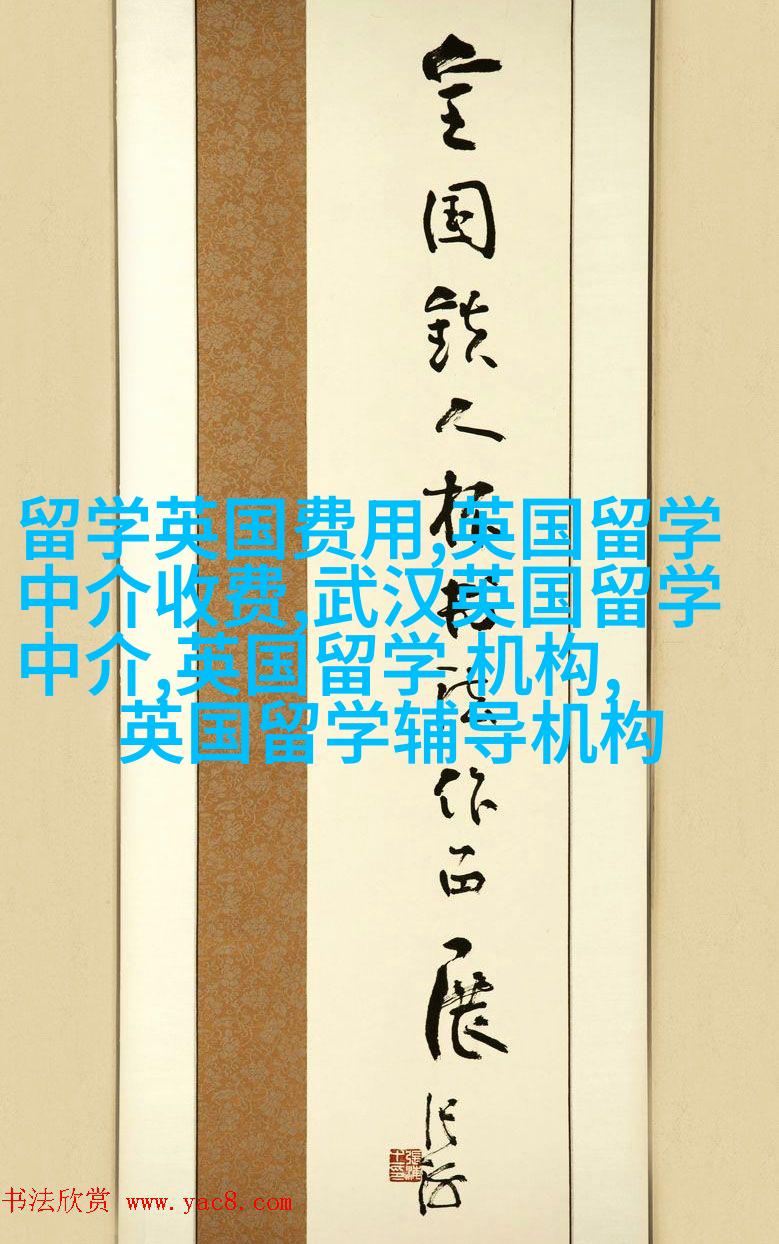 全国铁人杯书法作品展
张海
留学英国费用,英国留学
中介收费,武汉英国留学
中介,英国留学 机构,
英国留学辅导机构
书法欣赏 www.yac8.com